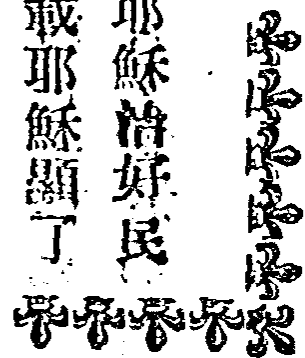 耶穌治好民
載耶穌顯了